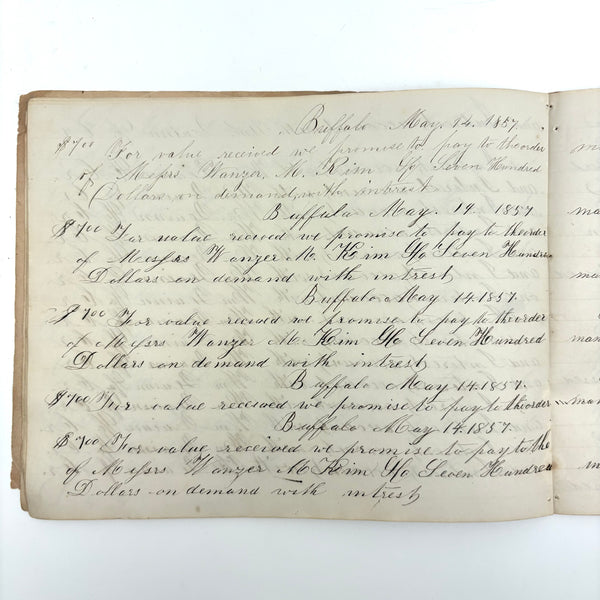 Buffalo May. 14. 1857.
$700 For value received we promise to pay to the order
of Messrs Wanzer, M. Kim & Co Seven Hundred
Dollars on demand, with intrest
Buffalo May. 14. 1857
$700 For value recived we promise to pay to the order
of Messrs Wanzer M. Kim & Co Seven Hundred
Dollars on demand with intrest
Buffalo May 14. 1857.
$700 For value recived we promise to pay to the order
of Messrs Wanzer M. Kim & Co Seven Hundred
Dollars on demand with intrest
Buffalo May 14. 1857.
$700 For value received we promise to pay to the order
Buffalo May 14. 1857.
$700 For value received we promise to pay to the
of Messrs Wanzer M Kim & Co Seven Hundred
Dollars on demand with intrest